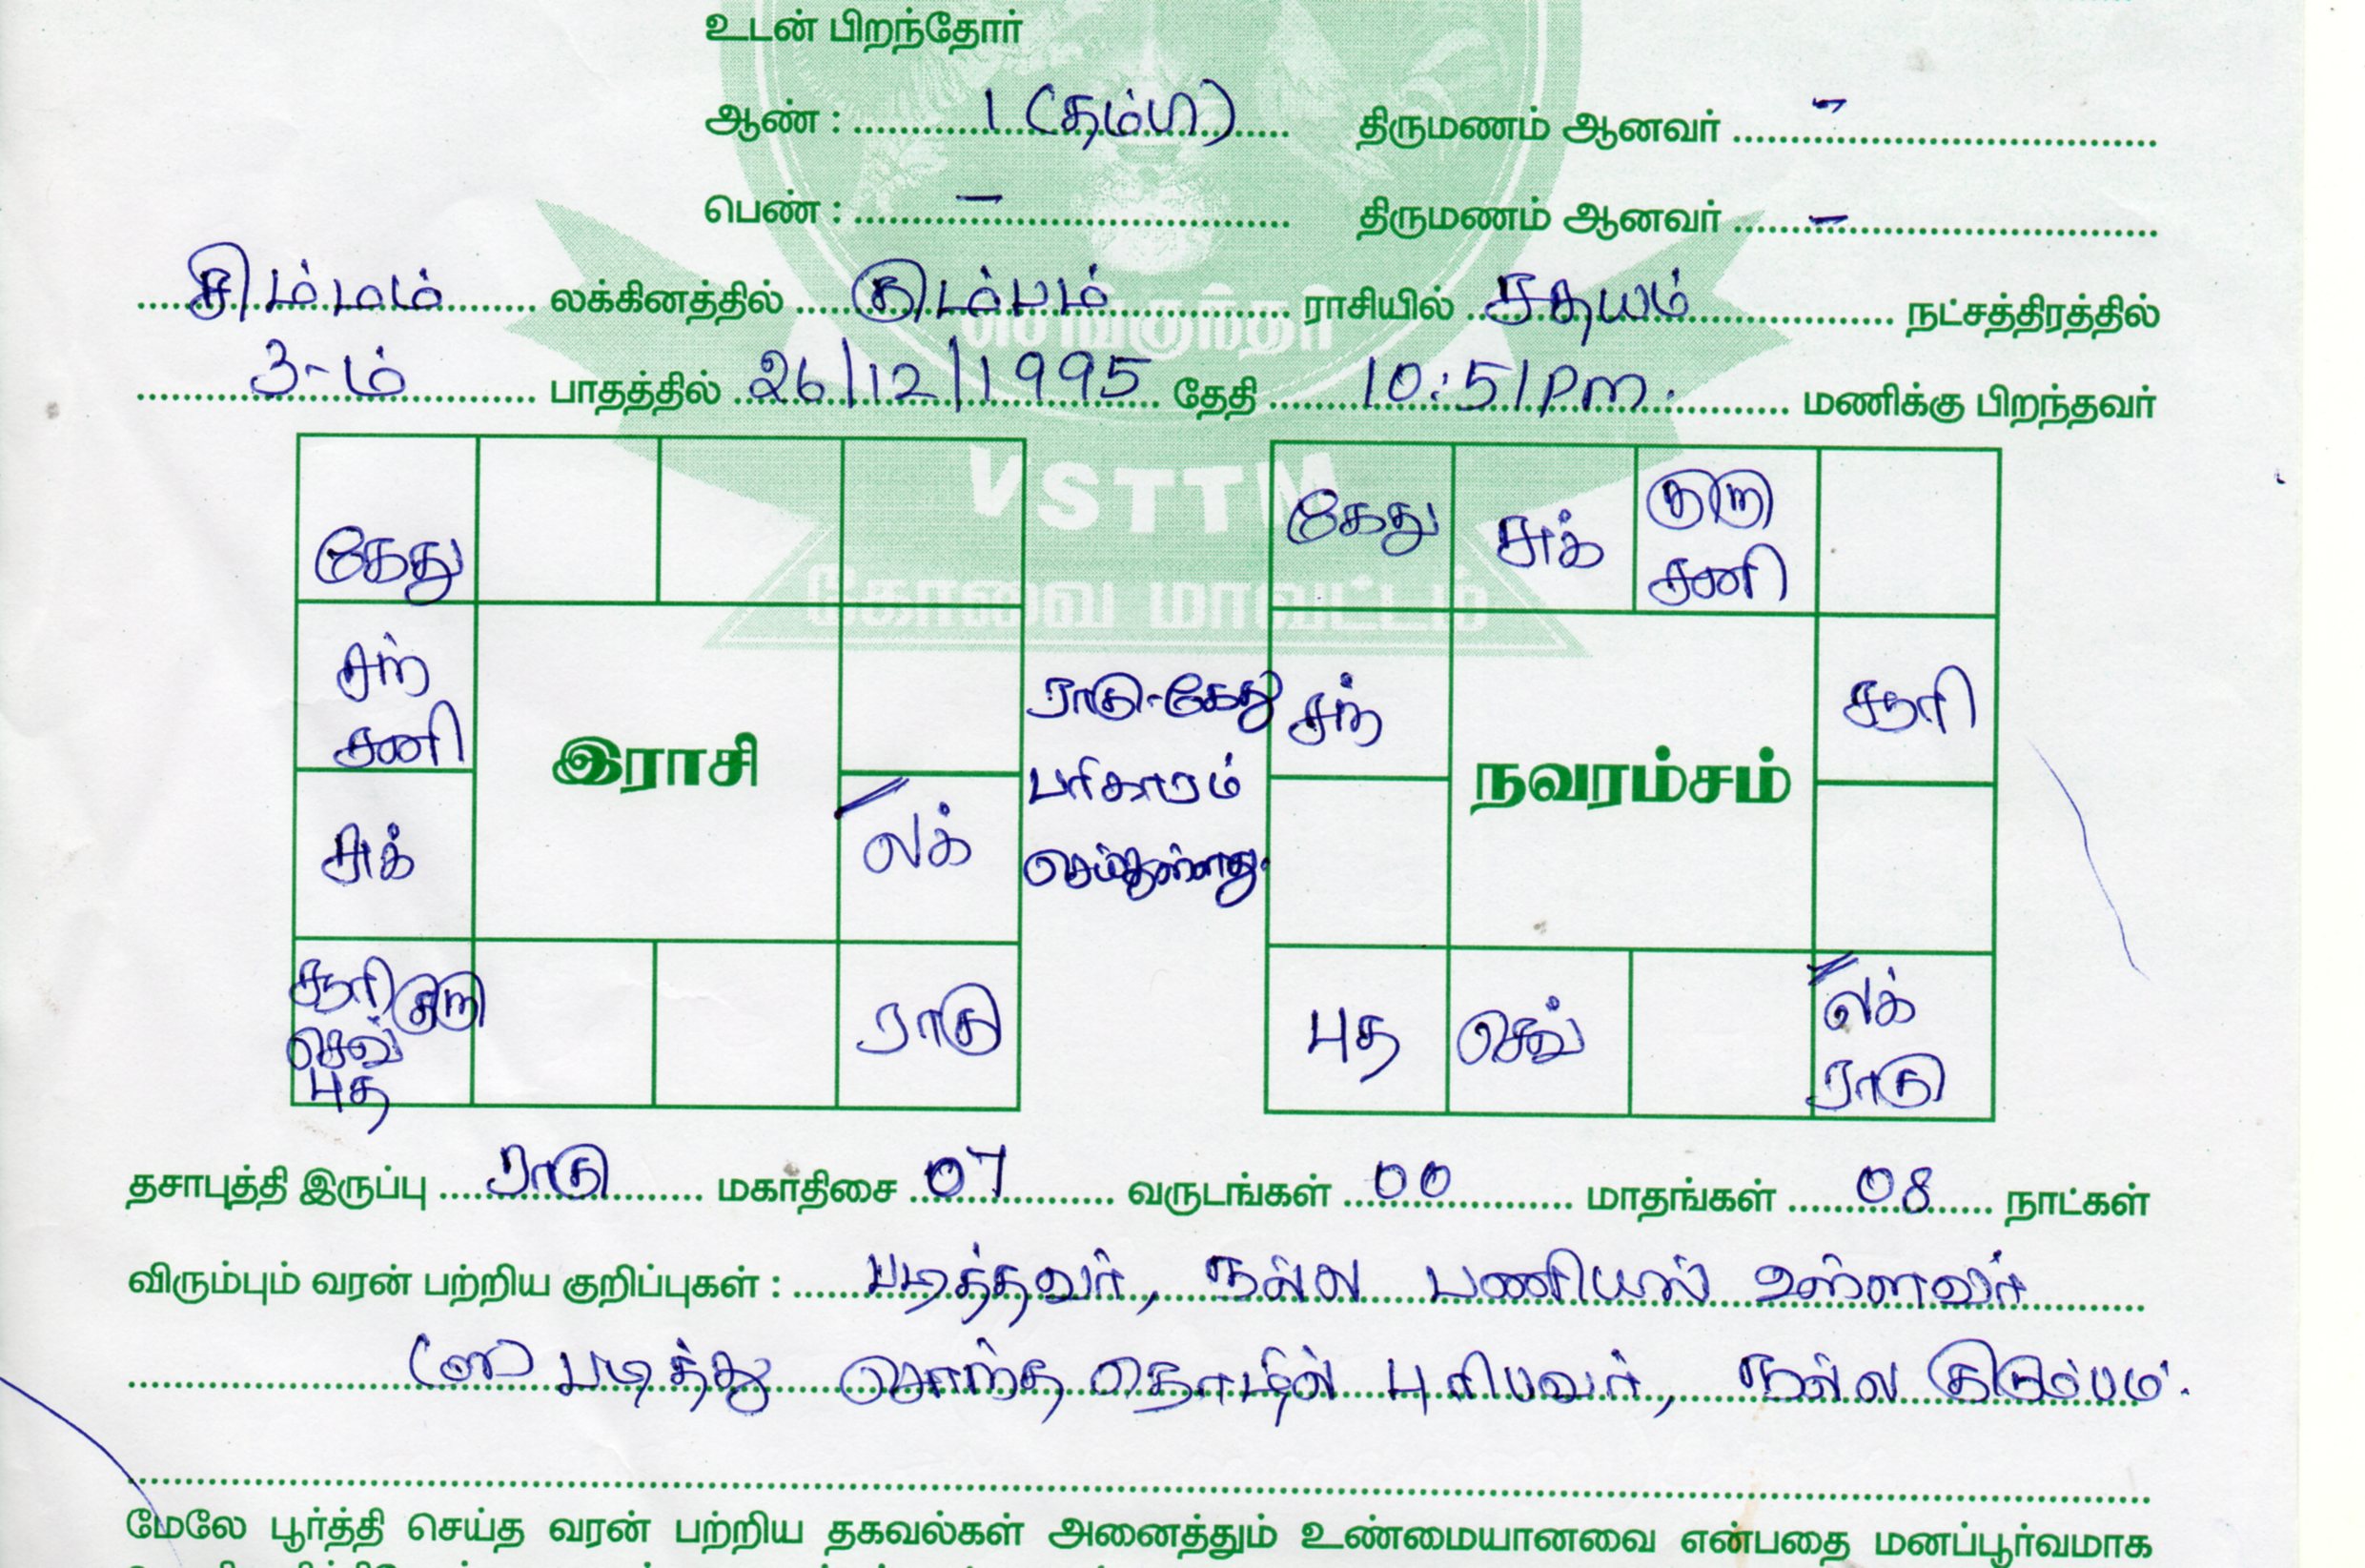 உடன் பிறந்தோர்
ஆண் : 1 (தம்பி) திருமணம் ஆனவர் -
பெண் : - திருமணம் ஆனவர் -
சிம்மம் லக்கினத்தில் கும்பம் ராசியில் சதயம் நட்சத்திரத்தில்
செங்குந்தர்
3-ம் பாதத்தில் 26/12/1995 தேதி 10:51 Pm. மணிக்கு பிறந்தவர்
VSTTM
கோவை மாவட்டம்
கேது
சந்
சனி
இராசி
சுக்
லக்
சூரி குரு
செவ்
புத
ராகு
ராகு-கேது
பரிகாரம்
செய்துள்ளது.
கேது சுக் குரு
சனி
சந்
சூரி
நவரம்சம்
புத செவ் லக்
ராகு
தசாபுத்தி இருப்பு ராகு மகாதிசை 07 வருடங்கள் 00 மாதங்கள் 08 நாட்கள்
விரும்பும் வரன் பற்றிய குறிப்புகள் : படித்தவர், நல்ல பணியில் உள்ளவர்
(or) படித்து சொந்த தொழில் புரிபவர், நல்ல குடும்பம்.
மேலே பூர்த்தி செய்த வரன் பற்றிய தகவல்கள் அனைத்தும் உண்மையானவை என்பதை மனப்பூர்வமாக